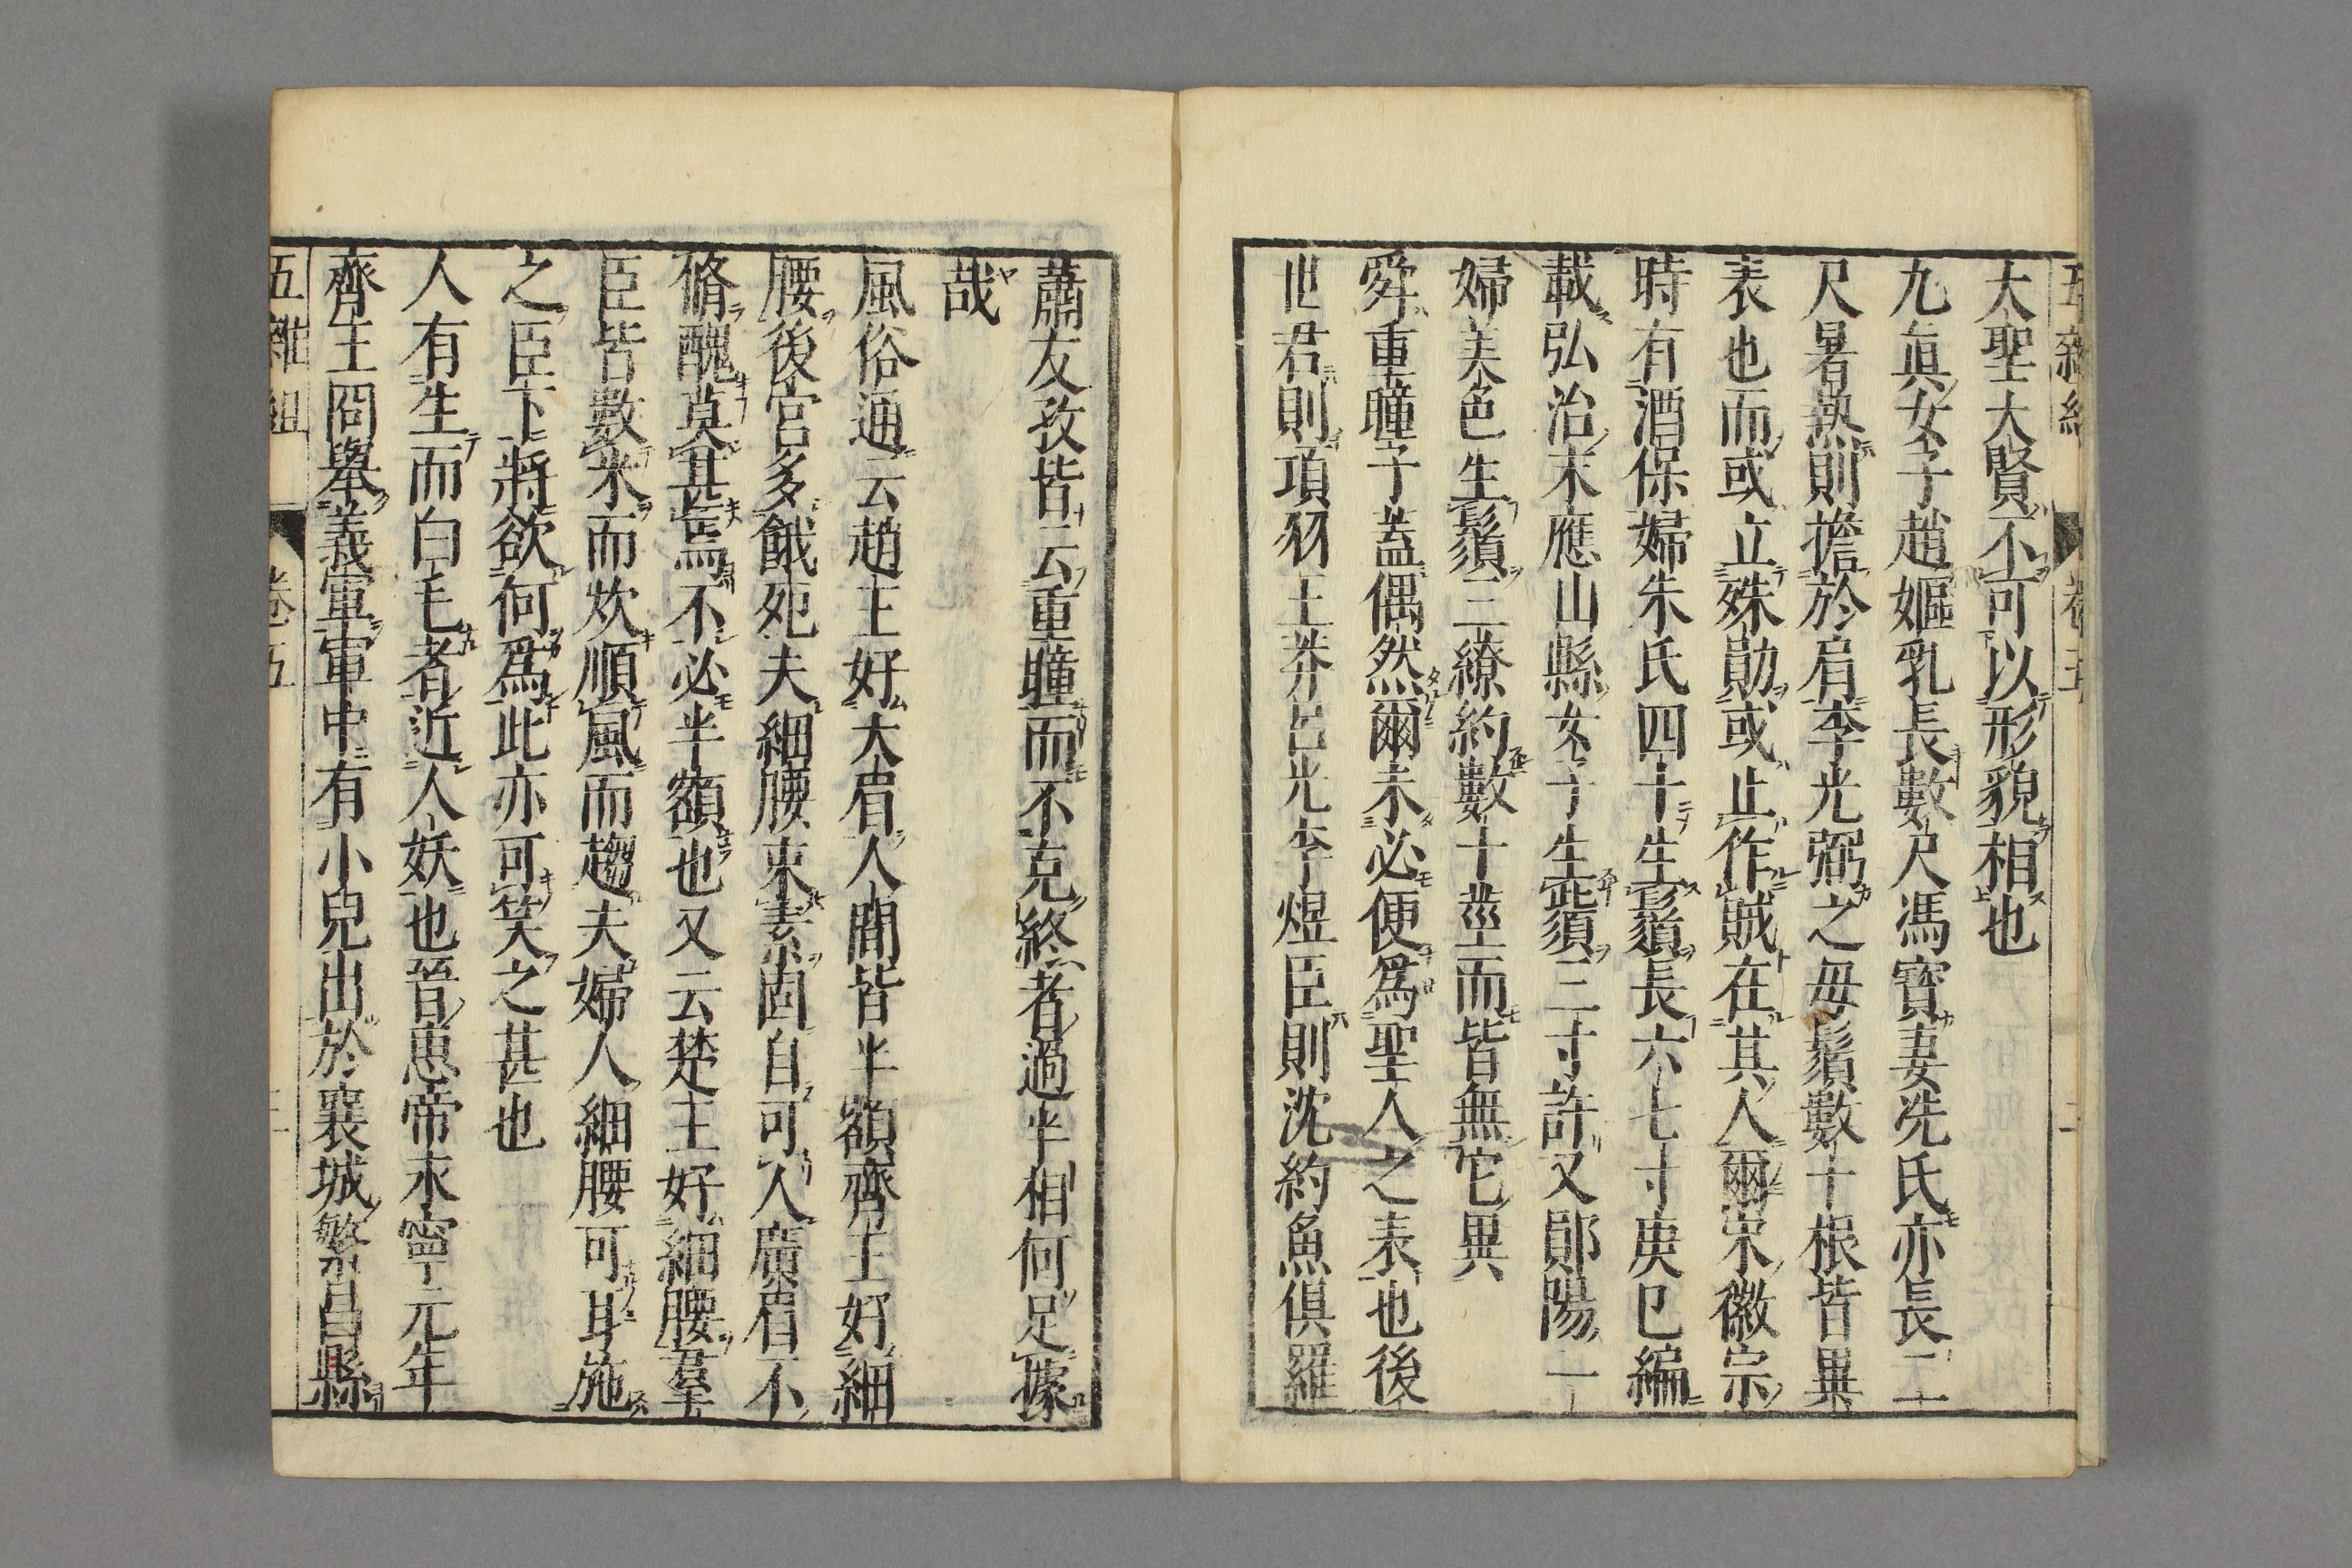 五雜組 卷五 二
大聖大賢不可以形貌相也
九眞女子趙嫗乳長數尺馮寶妻冼氏亦長二
尺暑熱則擔於肩李光弼之母鬚數十根皆異
表也而或立殊勛或止作賊在其人爾宋徽宗
時有酒保婦朱氏四十生鬚長六七寸庚巳編
載弘治末應山縣女子生髭三寸許又鄖陽一
婦美色生鬚三繚約數十莖而皆無它異
舜重瞳子蓋偶然爾未必便爲聖人之表也後
世君則項羽王莽呂光李煜臣則沈約魚俱羅
蕭友孜皆云重瞳而不克終者過半相何足據
哉
風俗通云趙王好大眉人間皆半額齊王好細
腰後宮多餓死夫細腰束素固自可人廣眉不
脩醜莫甚焉不必半額也又云楚王好細腰羣
臣皆數米而炊順風而趨夫婦人細腰可耳施
之臣下將欲何爲此亦可笑之甚也
人有生而白毛者近人妖也晉惠帝永寧元年
齊王冏舉義軍軍中有小兒出於襄城繁昌縣
五雜組 卷五